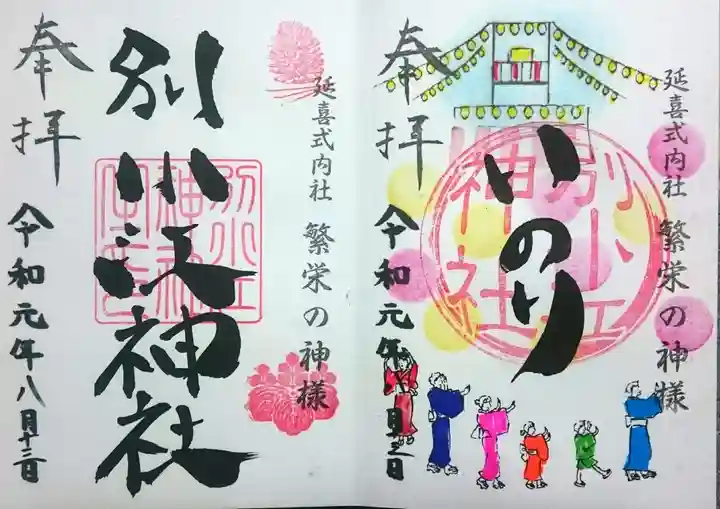 延喜式内社 繁栄の神様
いのり
別小江神社
奉拝
令和元年八月十三日
延喜式内社 繁栄の神様
別小江神社
奉拝
令和元年八月十三日